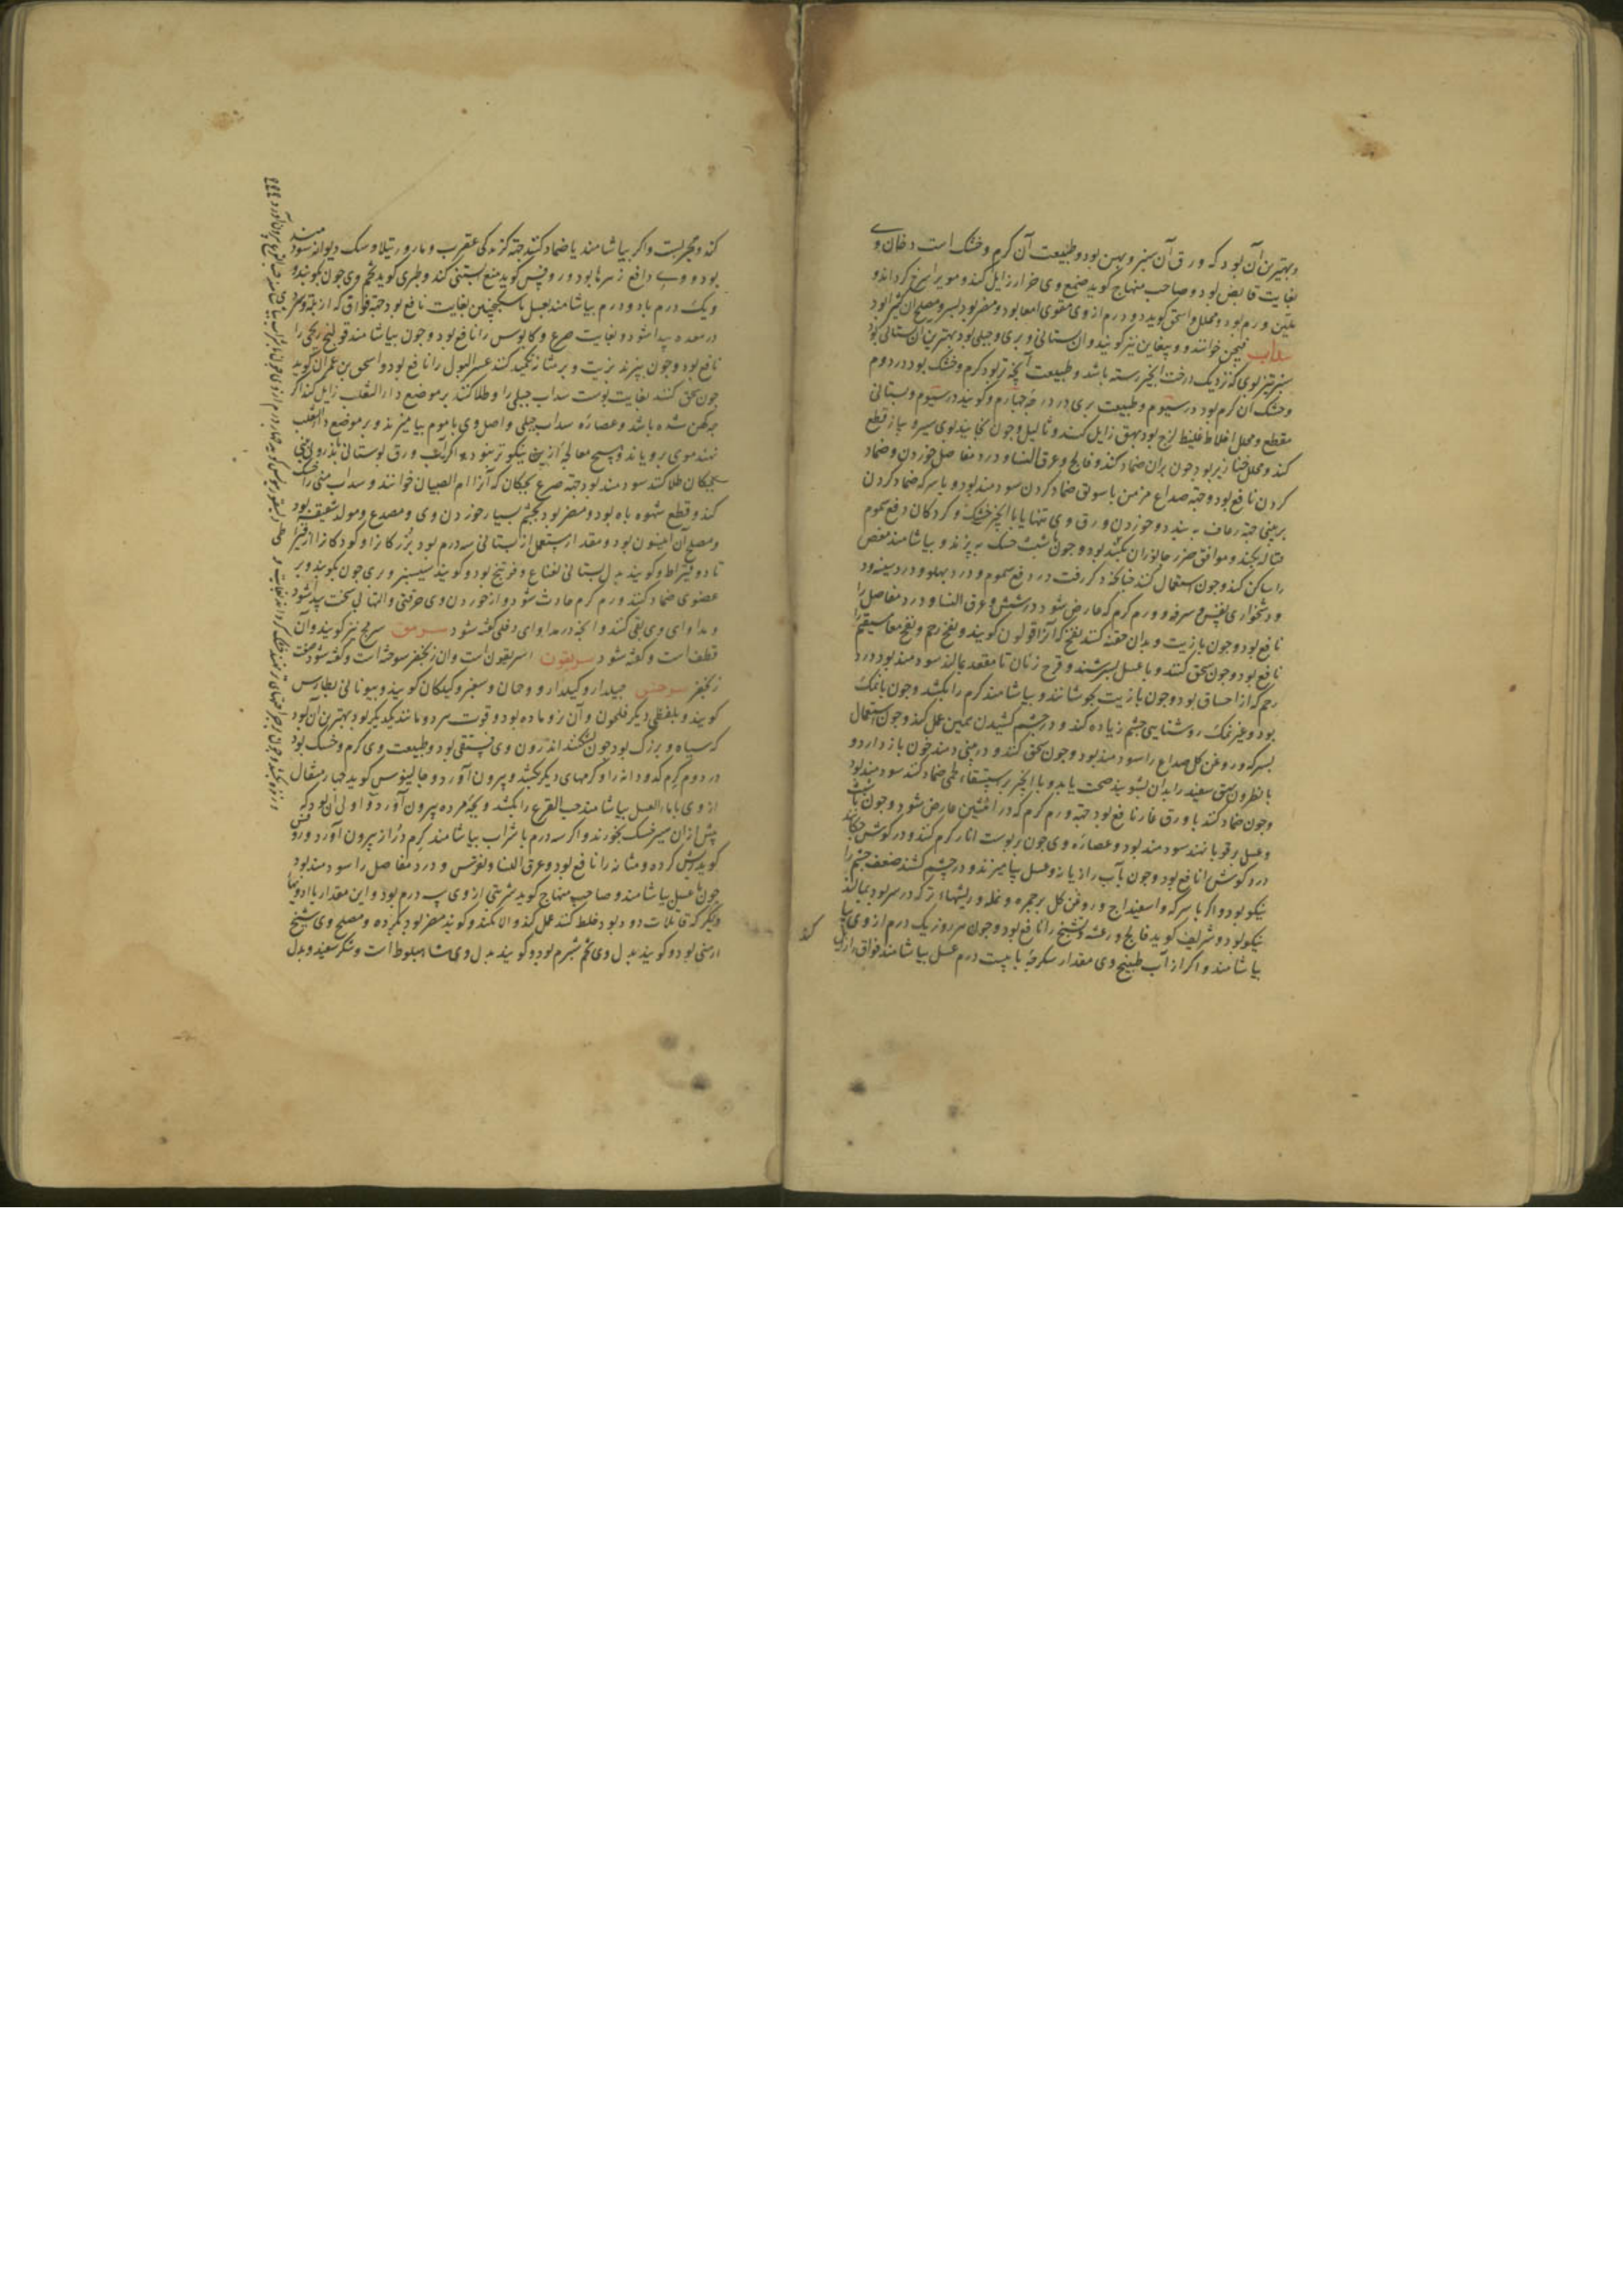 و بهترین آن بود که ورق آن سبز و پهن بود و طبیعت آن گرم و خشک است دخان وی
بغایت قابض بود و صاحب منهاج گوید صمغ وی خراز زایل کند و موی را سرخ گرداند و
ملین ورم بود و محلل و اسحق گوید دو درم از وی مقوی امعا بود و مضر بود بسر و مصلح آن کثیرا بود
سداب فیجن خوانند و نیز گویند و آن بستانی و بری و جبلی بود بهترین آن بستانی بود
سبز تیز بوی که نزدیک درخت انجیر رسته باشد و طبیعت آنچه تر بود گرم و خشک بود در دوم
و خشک آن گرم بود در سیوم و طبیعت بری در درجه چهارم و گویند در سیوم و بستانی
مقطع و محلل اخلاط غلیظ لزج بود بهق زایل کند و ثالیل و چون بخایند بوی سیر و پیاز قطع
کند و محلل خنازیر بود چون بران ضماد کنند و فالج و عرق النسا و درد مفاصل خوردن و ضماد
کردن نافع بود و جهة صداع مزمن با سویق ضماد کردن سودمند بود و با سرکه ضماد کردن
بر بینی جهة رعاف به بندد و خوردن ورق وی تنها یا با انجیر خشک و گردکان دفع سموم
قتاله بکند و موافق ضرر جانوران بود و چون با شبت خشک به پزند و بیاشامند مغص
را ساکن کند و چون استعمال کنند چنانچه ذکر رفت در دفع سموم و درد پهلو و درد سینه و
دشخواری نفس و سرفه و ورم گرم که عارض شود در شش و عرق النسا و درد مفاصل را
نافع بود و چون با زیت و بدان حقنه کنند نفخ که آنرا قولون گویند و نفخ رحم و نفخ معا مستقیم را
نافع بود و چون سحق کنند و با عسل بسرشند و فرج زنان تا مقعد بمالند سودمند بود درد
رحم که از اختناق بود و چون با زیت بجوشانند و بیاشامند کرم را بکشد و چون با نمک
بود و غیر نمک روشنایی چشم زیاده کند و در چشم کشیدن همین عمل کند و چون استعمال
بسرکه و روغن گل صداع را سودمند بود و چون سحق کنند و در بینی دمند خون باز دارد و
با نطرون بهق سفید را بدان بشویند صحت یابد و با انجیر بر استسقاء لحمی ضماد کنند سودمند بود
و چون ضماد کنند با ورق غار نافع بود جهة ورم گرم که در انثیین عارض شود و چون با شبت
و عسل بر قوبا نهند سودمند بود و عصاره وی چون در پوست انار گرم کنند و در گوش چکانند
درد گوش را نافع بود و چون با آب رازیانه و عسل بیامیزند و در چشم کشند ضعف چشم را
نیکو بود و اگر با سرکه و اسفیداج و روغن گل بر جمره و نمله و ریشهاء تر که در سر بود بمالند
نیکو بود و شریف گوید فالج و رعشه و تشنج را نافع بود و چون هر روز یک درم از وی
بیاشامند و اگر از آب طبیخ وی مقدار سکرجه با بیست درم عسل بیاشامند فواق زایل
کند
کند و مجربست و اگر بیاشامند یا ضماد کنند جهة گزندگی عقرب و مار و رتیلا و سگ دیوانه سودمند
بود و وی دافع زهرها بود و روفس گوید منع آبستنی کند و طبری گوید تخم وی چون بکوبند و
و یک درم یا دو درم بیاشامند بعسل یا سکنجبین بغایت نافع بود جهة فواق که از بلغم و سردی
در معده پیدا شود و بغایت صرع و کابوس را نافع بود و چون بیاشامند قولنج ریحی را
نافع بود و چون بپزند بزیت و بر مثانه تکمید کنند عسر البول را نافع بود و اسحق بن عمران گوید
چون سحق کنند بغایت پوست سداب جبلی را و طلا کنند بر موضع داء الثعلب زایل کند اگر
چه کهن شده باشد و عصاره سداب جبلی و اصل وی با موم بیامیزند و بر موضع داء الثعلب
نهند موی برویاند و هیچ معالجه ازین نیکوتر نبود و اگر آب ورق بوستانی
بچگان طلا کنند سودمند بود جهة صرع بچگان که آنرا ام الصبیان خوانند و سداب منی را خشک
کند و قطع شهوه باه بود و مضر بود بچشم بسیار خوردن وی و مصدع و مولد شقیقه بود
و مصلح آن انیسون بود و مقدار مستعمل از بستانی سه درم بود بزرگان را و کودکان را از قیراط
تا دو قیراط و گویند بدل بستانی نعناع و فوتنج بود و گویند سیسنبر و بری چون بکوبند و بر
عضوی ضماد کنند ورم گرم حادث شود و از خوردن وی حرقتی و التهابی سخت پیدا شود
و مداوای وی بقی کنند و آنچه در مداوای دفلی گفته شود سرمق سرمج نیز گویند و آن
قطف است و گفته شود سریقون اسریقون است و آن زنجفر سوخته است و گفته شود صفت
زنجفر سرخس جیلدارو و کیلدارو گویند و بیونانی بطارس
گویند و بلفظی دیگر فلحون و آن نر و ماده بود و قوت هر دو مانند یکدیگر بود بهترین آن بود
که سیاه و بزرگ بود چون بشکنند اندرون وی فستقی بود و طبیعت وی گرم و خشک بود
در دوم کرم کدودانه را و کرمهای دیگر بکشد و بیرون آورد و جالینوس گوید چهار مثقال
از وی با ماء العسل بیاشامند حب القرع را بکشد و بچه مرده بیرون آورد و اولی آن بود که
پیش از آن سیر خشک بخورند و اگر سه درم با شراب بیاشامند کرم دراز بیرون آورد و روفس
گوید ریش گرده و مثانه را نافع بود و عرق النسا و نقرس و درد مفاصل را سودمند بود
چون با عسل بیاشامند و صاحب منهاج گوید شربتی از وی درم بود و این مقدار با ادویهاء
دیگر که قاتلات دود بود خلط کنند عمل کند و الا نکند و گویند مضر بود بگرده و مصلح وی شیح
ارمنی بود و گویند بدل وی تخم شبرم بود و گویند بدل وی شاه بلوط است و شکر سفید و بدل